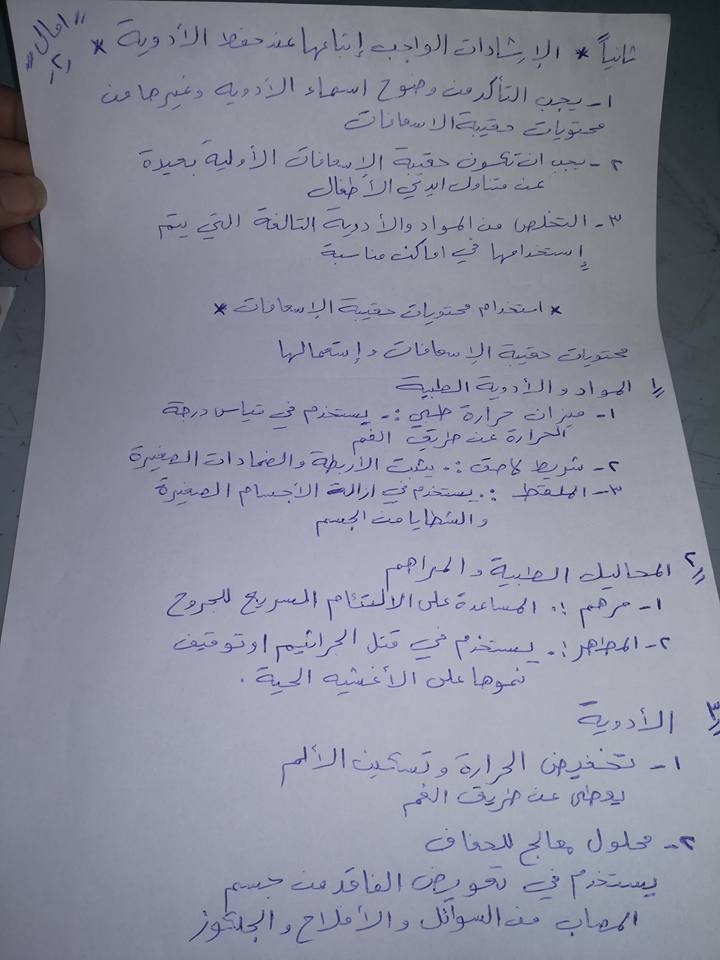 "امال"
-٢-
ثانياً * الإرشادات الواجب إتباعها عند حفظ الأدوية *
١- يجب التأكد من وضوح اسماء الأدويه وغيرها من
محتويات حقيبة الاسعافات
٢- يجب ان تكون حقيبة الإسعافات الأولية بعيدة
عن متناول ايدي الأطفال
٣- التخلص من المواد والأدوية التالفة التي يتم
إستخدامها في اماكن مناسبة
* استخدام محتويات حقيبة الإسعافات *
محتويات حقيبة الإسعافات وإستعمالها
١// المواد والأدوية الطبية
١- ميزان حرارة طبي :- يستخدم في قياس درجة
الحرارة عن طريق الفم
٢- شريط لاصق :- يثبت الأربطة والضمادات الصغيرة
٣- الملقط :- يستخدم في ازالة الأجسام الصغيرة
والشظايا من الجسم
٢// المحاليل الطبية والمراهم
١- مرهم :- المساعدة على الالتئام السريع للجروح
٢- المطهر :- يستخدم في قتل الجراثيم او توقيف
نموها على الأغشيه الحية .
٣// الأدوية
١- تخفيض الحرارة وتسكين الألم
يعطى عن طريق الفم
٢- محلول معالج للجفاف
يستخدم في تعويض الفاقد من جسم
المصاب من السوائل والأملاح والجلكوز